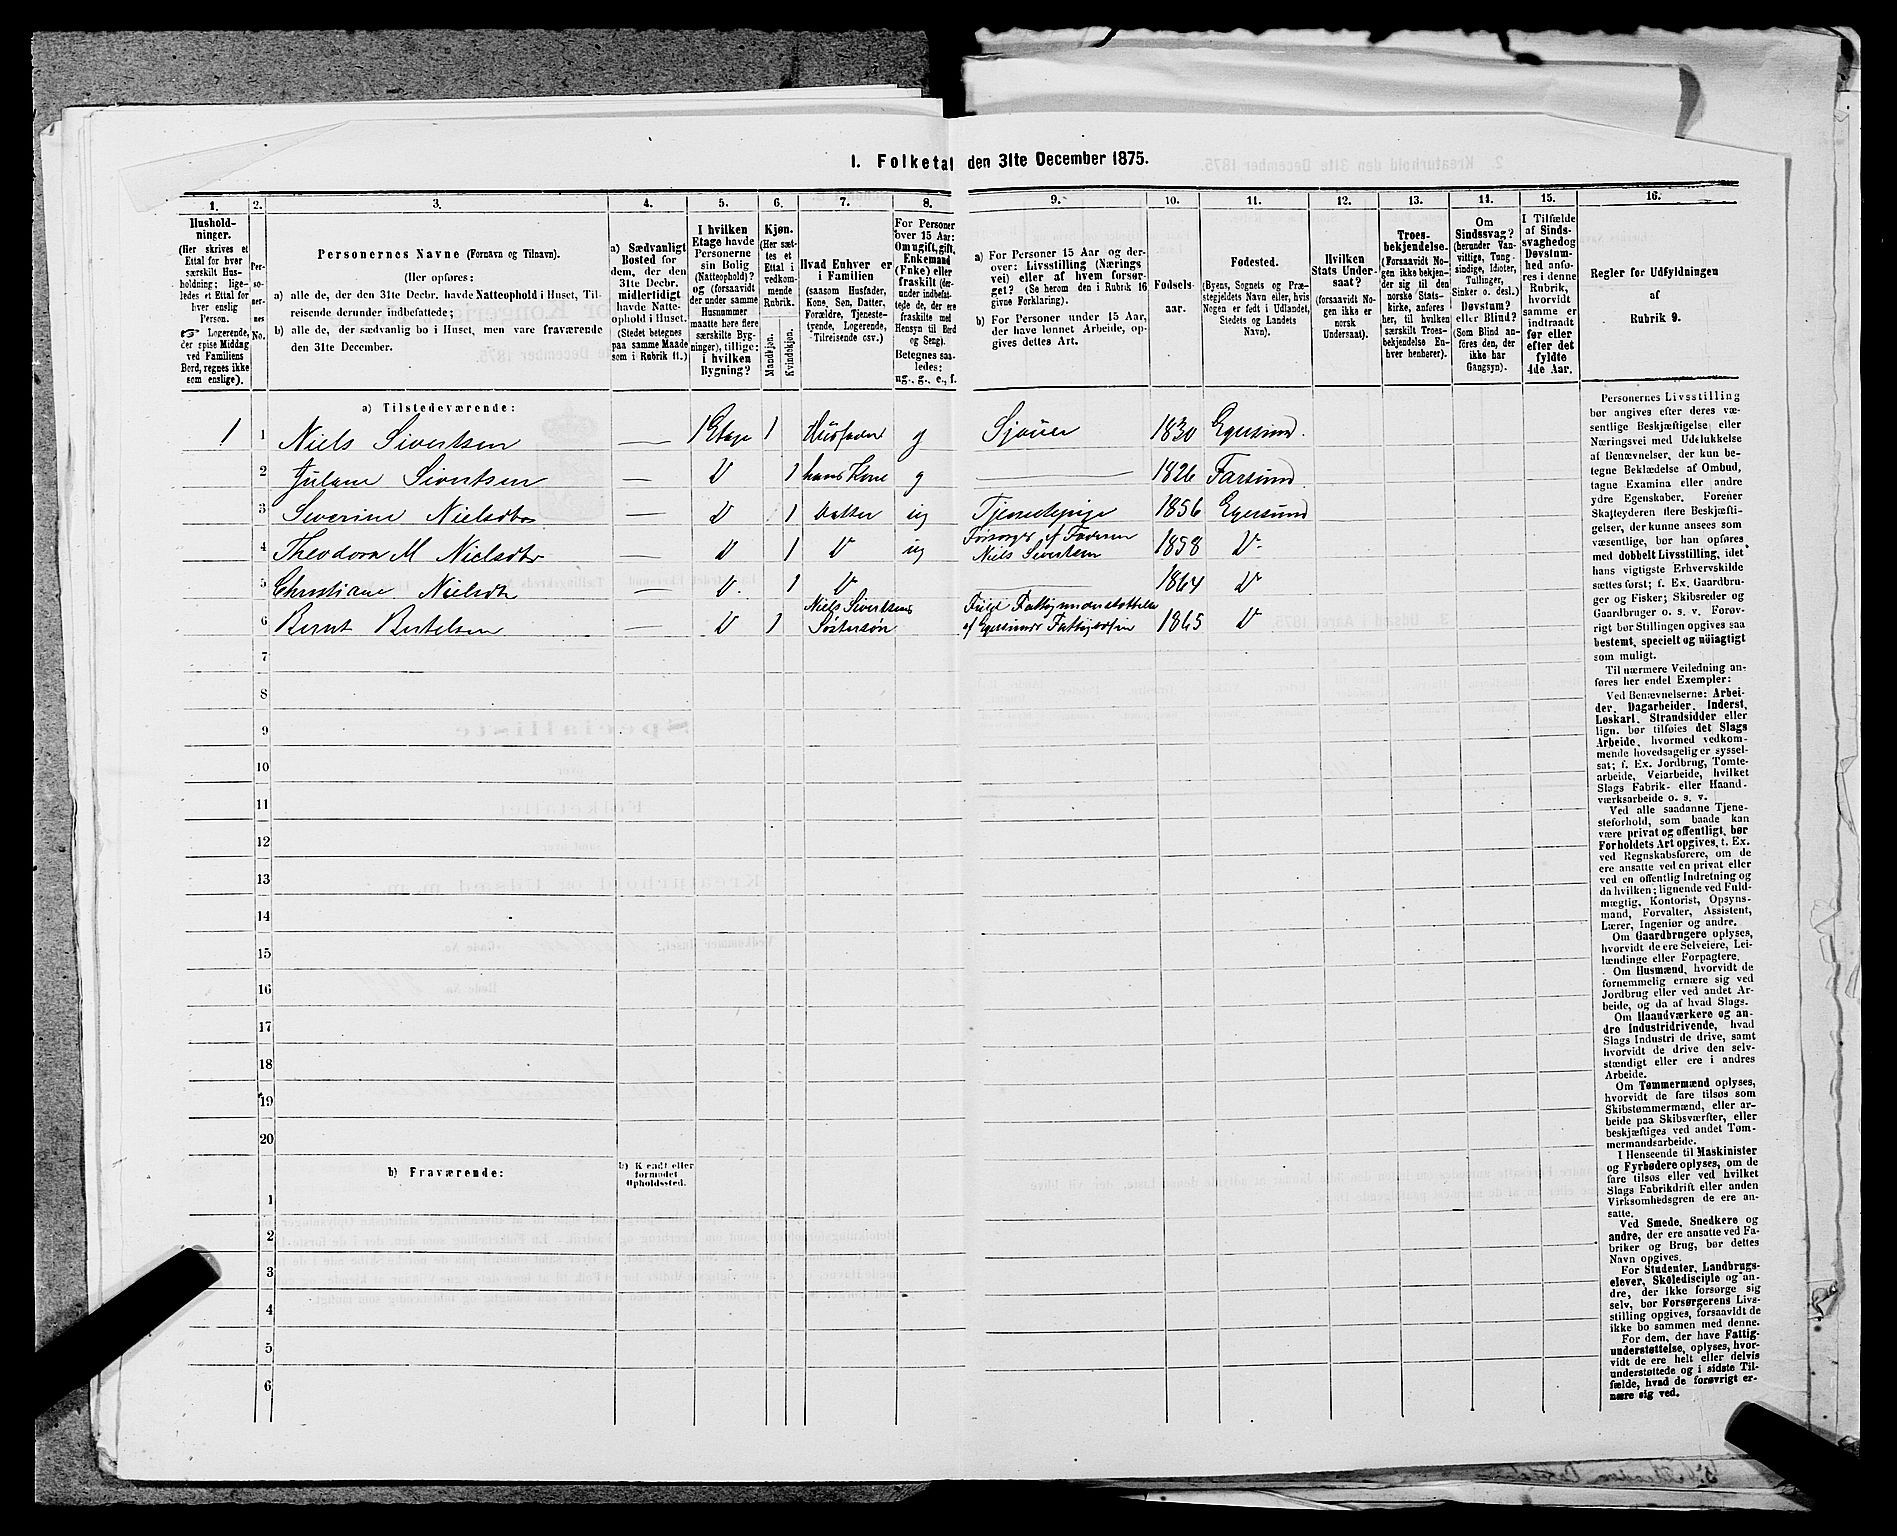 1. Folketal den 31te December 1875.
1. 2. 3. 4. 5. 6. 7. 8. 9. 10. 11. 12. 13. 14. 15. 16.
Hushold-
ninger.
(Her skrives et
Ettal for hver
særskilt Hus-
holdning; lige-
ledes et Ettal for
hver enslig
Person.
Logerende,
der spise Middag
ved Familiens
Bord, regnes ikke
som enslige).
Per-
so-
ner-
nes
No.
Personernes Navne (Fornavn og Tilnavn).
(Her opføres:
a) alle de, der den 31te Decbr. havde Natteophold i Huset, Til-
reisende derunder indbefattede;
b) alle de, der sædvanlig bo i Huset, men vare fraværende
den 31te December.
a) Sædvanligt
Bosted for
dem, der den
31te Decbr.
midlertidigt
havde Natte-
ophold i Huset.
(Stedet betegnes
paa samme Maade
som i Rubrik 11.)
I hvilken
Etage havde
Personerne
sin Bolig
(Natteophold)?
og (forsaavidt
der under samme
Husnummer
maatte høre flere
særskilte Byg-
ninger), tillige:
i hvilken
Bygning?
Kjøn.
(Her sæt-
tes et
Ettal i
vedkom-
mende
Rubrik.
Mandkjøn.
Kvindekjøn.
Hvad Enhver er
i Familien
(saasom Husfader,
Kone, Søn, Datter,
Forældre, Tjeneste-
tyende, Logerende,
Tilreisende csv.)
For Personer
over 15 Aar:
Om ugift, gift,
Enkemand
(Enke) eller
fraskilt
(derunder indbefat-
tede de, der ere
fraskilte med
Hensyn til Bord
og Seng).
Betegnes saa-
ledes:
ug., g., e., f.
a) For Personer 15 Aar og der-
over: Livsstilling (Nærings-
vei) eller af hvem forsør-
get? (Se herom den i Rubrik 16
givne Forklaring).
b) For Personer under 15 Aar,
der have lønnet Arbeide, op-
gives dettes Art.
Fødsels-
aar.
Fødested.
(Byens, Sognets og Præ-
stegjeldets Navn eller, hvis
Nogen er født i Udlandet,
Stedets og Landets
Navn).
Hvilken
Stats Under-
saat?
(forsaavidt No-
gen ikke er
norsk
Undersaat).
Troes-
bekjendelse.
(Forsaavidt No-
gen ikke bekjen-
der sig til den
norske Stats-
kirke, anføres
her, til hvilken
særskilt Troes-
bekjendelse En-
hver henhører).
Om
Sindssvag?
(herunder Van-
vittige, Tung-
sindige, Idioter,
Tullinger,
Sinker o. desl.)
Døvstum?
eller Blind?
(Som Blind an-
føres den, der
ikke har
Gangsyn).
I Tilfælde
af Sinds-
svaghed og
Døvstum-
hed anfø-
res i denne
Rubrik,
hvorvidt
samme er
indtraadt
før eller
efter det
fyldte
4de Aar.
Regler for Udfyldningen
af
Rubrik 9.
a) Tilstedeværende:
1 1 Niels Sivertsen — 1 Etage 1 Husfader g Sjouer 1830 Egersund.
2 Juliane Sivertsen — D 1 hans Kone g — 1826 Farsund.
3 Severine Nielsdtr — D 1 Datter ug Tjenestepige 1856 Egersund
4 Theodora M Nielsdtr — D 1 D ug Forsørges af Faderen Niels Sivertsen 1858 D.
5 Christiane Nielsdtr — D. 1 D — 1864 D
6 Bernt Bertelsen — D 1 Niels Sivertsens Søstersøn Fuld Fattigunderstøttelse af Egersunds Fattigvæsen 1865 D
7
8
9
10
11
12
13
14
15
16
17
18
19
20
b) Fraværende:
b) Kjendt eller
formodet
Opholdssted.
1
2
3
4
5
6
Personernes Livsstilling
bør angives efter deres væ-
sentlige Beskjæftigelse eller
Næringsvei med Udelukkelse
af Benævnelser, der kun be-
tegne Beklædelse af Ombud,
tagne Examina eller andre
ydre Egenskaber. Forener
Skatteyderen flere Beskjæfti-
gelser, der kunne ansees som
væsentlige, bør han opføres
med dobbelt Livsstilling, idet
hans vigtigste Erhvervskilde
sættes først; f. Ex. Gaardbru-
ger og Fisker; Skibsreder og
Gaardbruger o. s. v. Forøv-
rigt bør Stillingen opgives saa
bestemt, specielt og nøiagtigt
som muligt.
Til nærmere Veiledning an-
føres her endel Exempler:
Ved Benævnelserne: Arbei-
der, Dagarbeider, Inderst,
Løskarl, Strandsidder eller
lign. bør tilføies det Slags
Arbeide, hvormed vedkom-
mende hovedsagelig er syssel-
sat; f. Ex. Jordbrug, Tomte-
arbeide, Veiarbeide, hvilket
Slags Fabrik- eller Haand-
værksarbeide o. s. v.
Ved alle saadanne Tjene-
steforhold, som baade kan
være privat og offentligt, bør
Forholdets Art opgives, t. Ex.
ved Regnskabsførere, om de
ere ansatte ved en privat eller
ved en offentlig Indretning og
da hvilken; lignende ved Fuld-
mægtig, Kontorist, Opsyns-
mand, Forvalter, Assistent,
Lærer, Ingeniør og andre.
Om Gaardbrugere oplyses,
hvorvidt de ere Selveiere, Lei-
lændinge eller Forpagtere.
Om Husmænd, hvorvidt de
fornemmelig ernære sig ved
Jordbrug eller ved andet Ar-
beide, og da af hvad Slags.
Om Haandværkere og an-
dre Industridrivende, hvad
Slags Industri de drive, samt
hvorvidt de drive den selv-
stændigt eller ere i andres
Arbeide.
Om Tømmermænd oplyses,
hvorvidt de fare tilsøs som
Skibstømmermænd, eller ar-
beide paa Skibsværfter, eller
beskjæftiges ved andet Tøm-
mermandsarbeide.
I Henseende til Maskinister
og Fyrbødere oplyses, om de
fare tilsøs eller ved hvilket
Slags Fabrikdrift eller anden
Virksomhedsgren de ere an-
satte.
Ved Smede, Snedkere og
andre, der ere ansatte ved Fa-
briker og Brug, bør dettes
Navn opgives.
For Studenter, Landbrugs-
elever, Skoledisciple og an-
dre, der ikke forsørge sig
selv, bør Forsørgerens Livs-
stilling opgives, forsaavidt de
ikke bo sammen med denne.
For dem, der have Fattig-
understøttelse, oplyses, hvor-
vidt de ere helt eller delvis
understøttede og i sidste Til-
fælde, hvad de forøvrigt er-
nære sig ved.